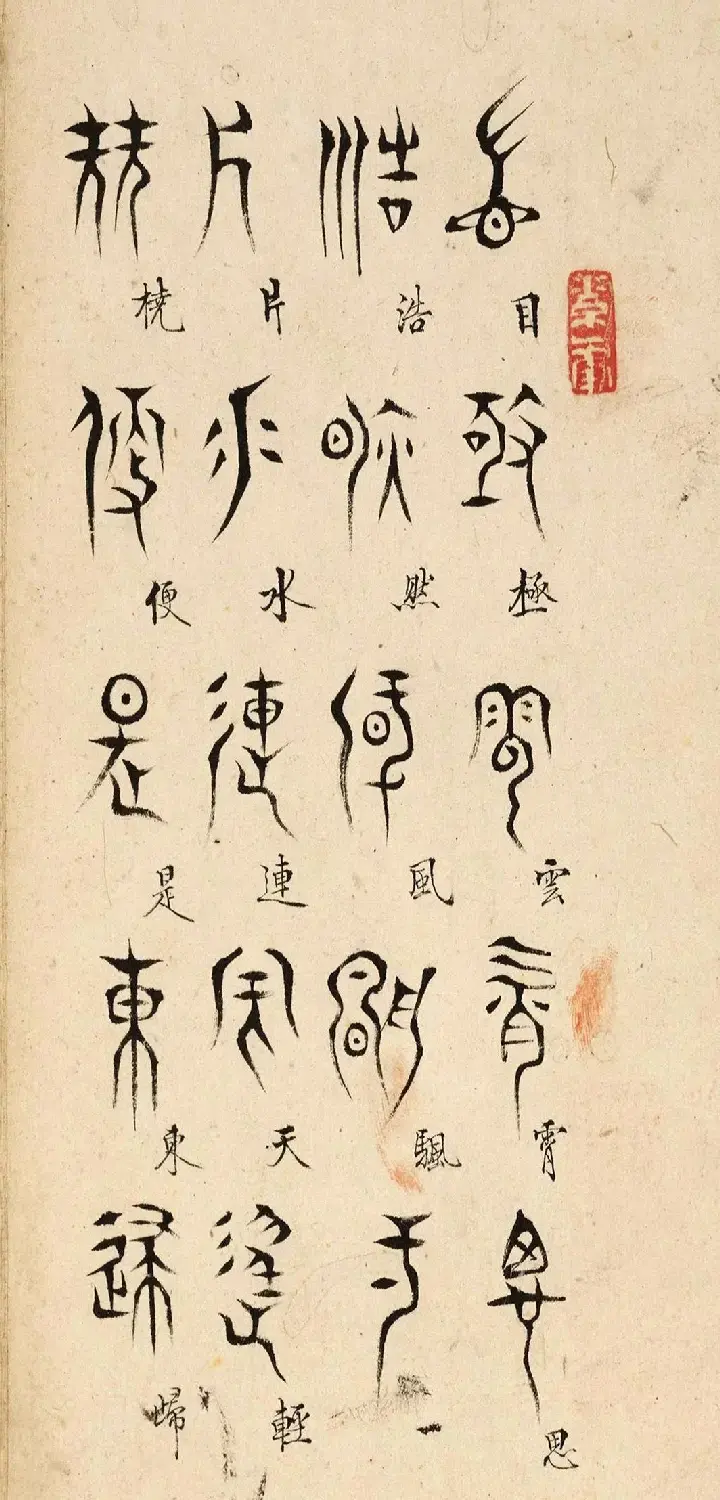 目極雲霄思
浩然風颿一
片水連天輕
橈便是東歸